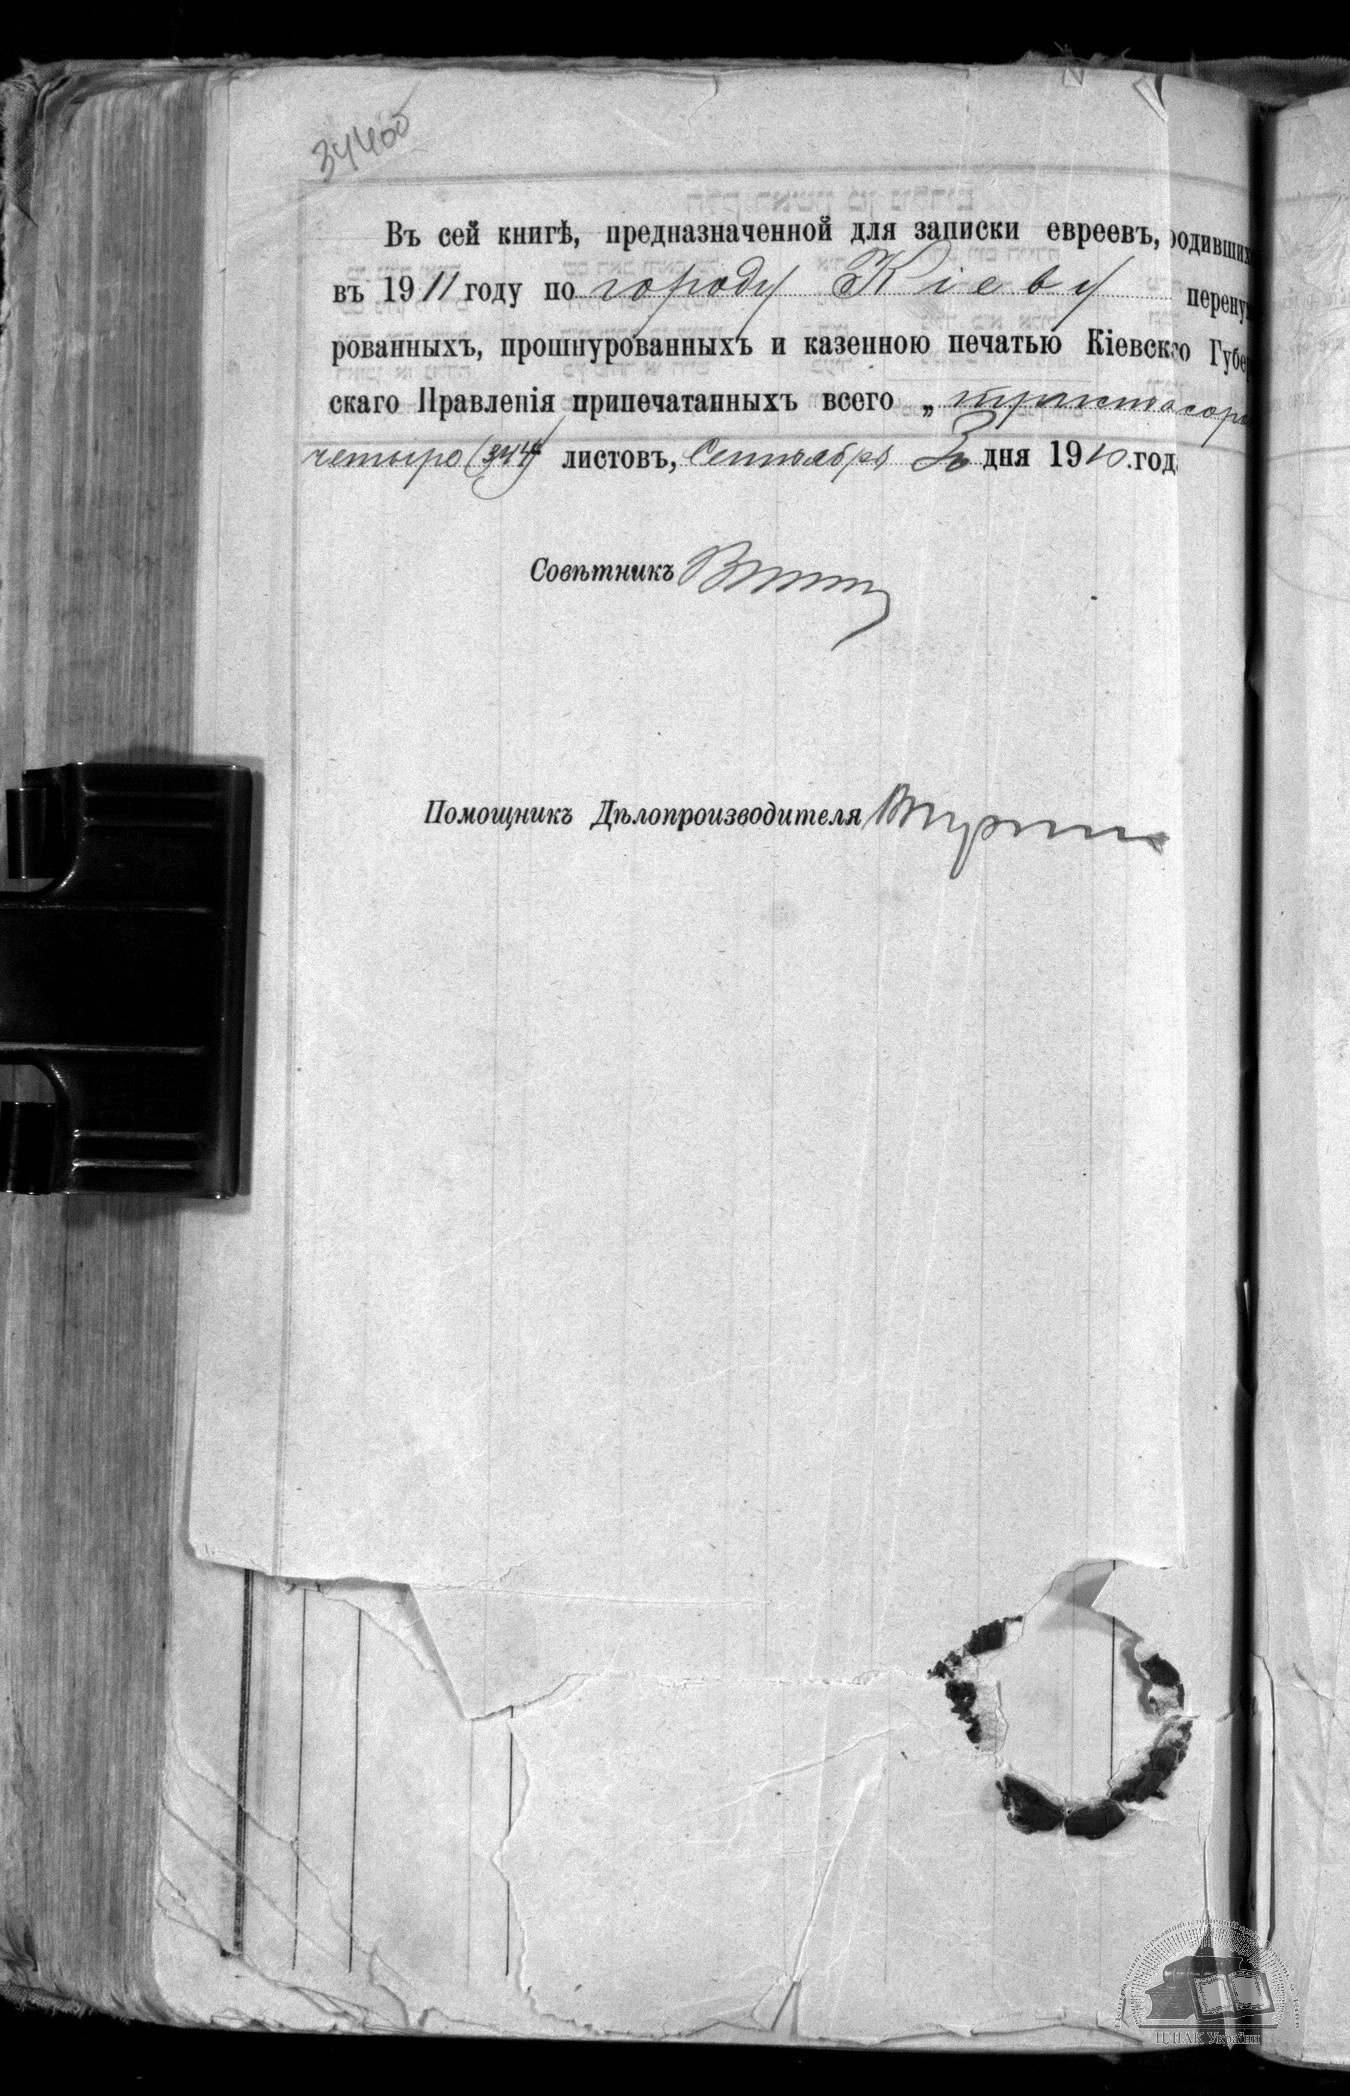 344об
Въ сей книгѣ, предназначенной для записки евреевъ, родивших
въ 1911 году по городу Кіеву перену
рованныхъ, прошнурованныхъ и казенною печатью Кіевскаго Губер
скаго Правленія припечатанныхъ всего „ тристасоро
четыре (344) листовъ, Сентября 30 дня 1910. год
Совѣтникъ
Помощникъ Дѣлопроизводителя
ЦДІАК України